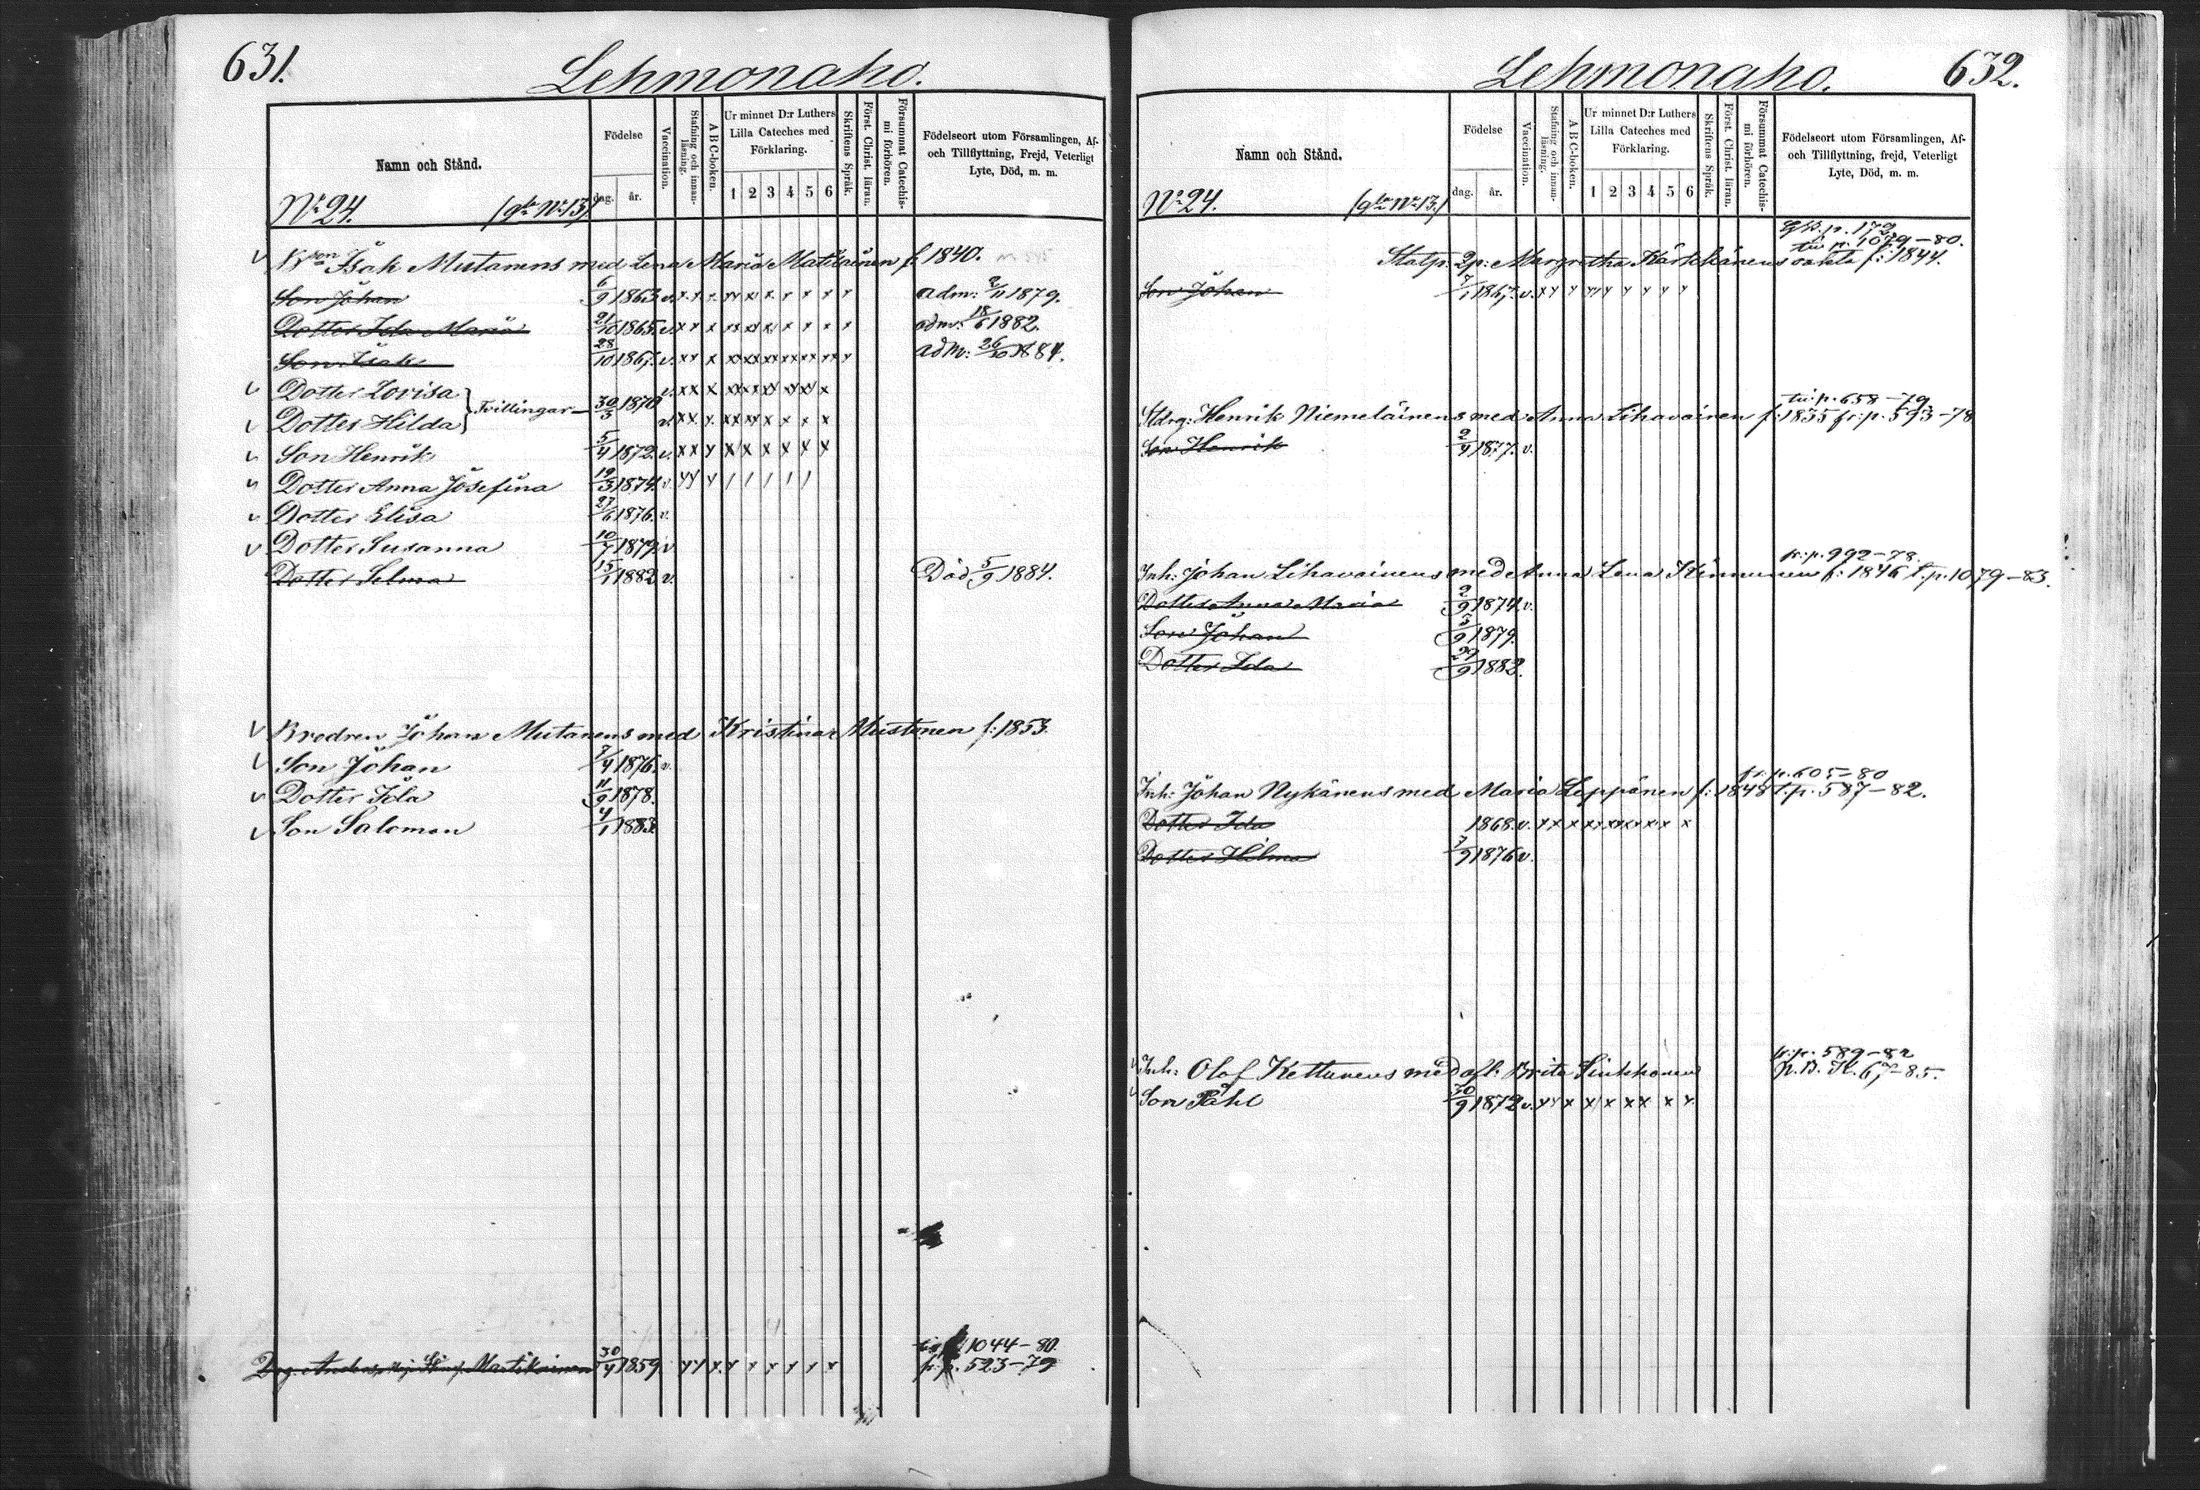 631.
Lehmonaho.
Namn och Stånd.
Födelse
dag. år.
Vaccination.
Stafning och innanläsning.
A B C-boken.
Ur minnet D:r Luthers
Lilla Cateches med
Förklaring.
1 2 3 4 5 6
Skriftens Språk.
Först. Christ. läran.
Försummat Catechismi förhören.
Födelseort utom Församlingen, Af-
och Tillflyttning, Frejd, Veterligt
Lyte, Död, m. m.
No 24. (gla No 13)
Isak Mutanens med Lena Maria Matilainen f: 1840.
Son Johan 6/9 1863 v. x x x x x x x x x x adm: 2/11 1879.
Dotter Ida Maria 21/10 1865. v. x x x x x x x x x x adm: 18/6 1882.
Son Isak 28/10 1867. v. x x x x x x x x x x adm: 26/10 1884.
Dotter Lovisa v. x x x x x x x x x
Tvillingar 30/3 1870
Dotter Hilda v. x x x x x x x x x
Son Henrik 5/4 1872. v. x x x x x x x x x
Dotter Anna Josefina 19/3 1874. v. x x x / / / / /
Dotter Elisa 27/6 1876. v.
Dotter Susanna 10/7 1879. v
Dotter Selma 15/1 1882 v. Död 5/9 1884.
Brodren Johan Mutanens med Kristina Mustonen f: 1853.
Son Johan 7/4 1876. v.
Dotter Ida 11/9 1878.
Son Salomon 4/1 1883.
1044-80.
Martikainen 30/4 1859. x x x x x x x x x fr: p. 523-79
632.
Lehmonaho.
Namn och Stånd.
Födelse
dag. år.
Vaccination.
Stafning och innanläsning.
A B C-boken.
Ur minnet D:r Luthers
Lilla Cateches med
Förklaring.
1 2 3 4 5 6
Skriftens Språk.
Först. Christ. läran.
Försummat Catechismi förhören.
Födelseort utom Församlingen, Af-
och Tillflyttning, frejd, Veterligt
Lyte, Död, m. m.
No 24. (gla No 13.)
p. 179
p. 1079-80.
Margretha Kärkkänens oäkta f: 1844.
Son Johan 7/1 1867. v. x x x x x x x x x
p. 658-79
Henrik Niemeläinens med Anna Lihavainen f: 1835 fr: p. 593-78
Son Henrik 2/4 1877. v.
fr: p. 992-78.
Inh: Johan Lihavainens med Anna Lena Hinnunen f: 1846 t. p. 1079-83.
Dotter Anna Maria 2/9 1874. v.
Son Johan 3/9 1879.
Dotter Ida 29/9 1882.
fr. p. 605-80
Inh: Johan Nykänens med Maria Leppänen f: 1848 t. p. 587-82.
Dotter Ida 1868. v. x x x x x x x x x
Dotter Hilma 7/9 1876 v.
fr: p. 589-82
Inh: Olof Kettunens med afl: Brita Sinkkonen p. B. K. 67-85.
Son Påhl 30/9 1872 v. x x x x x x x x x